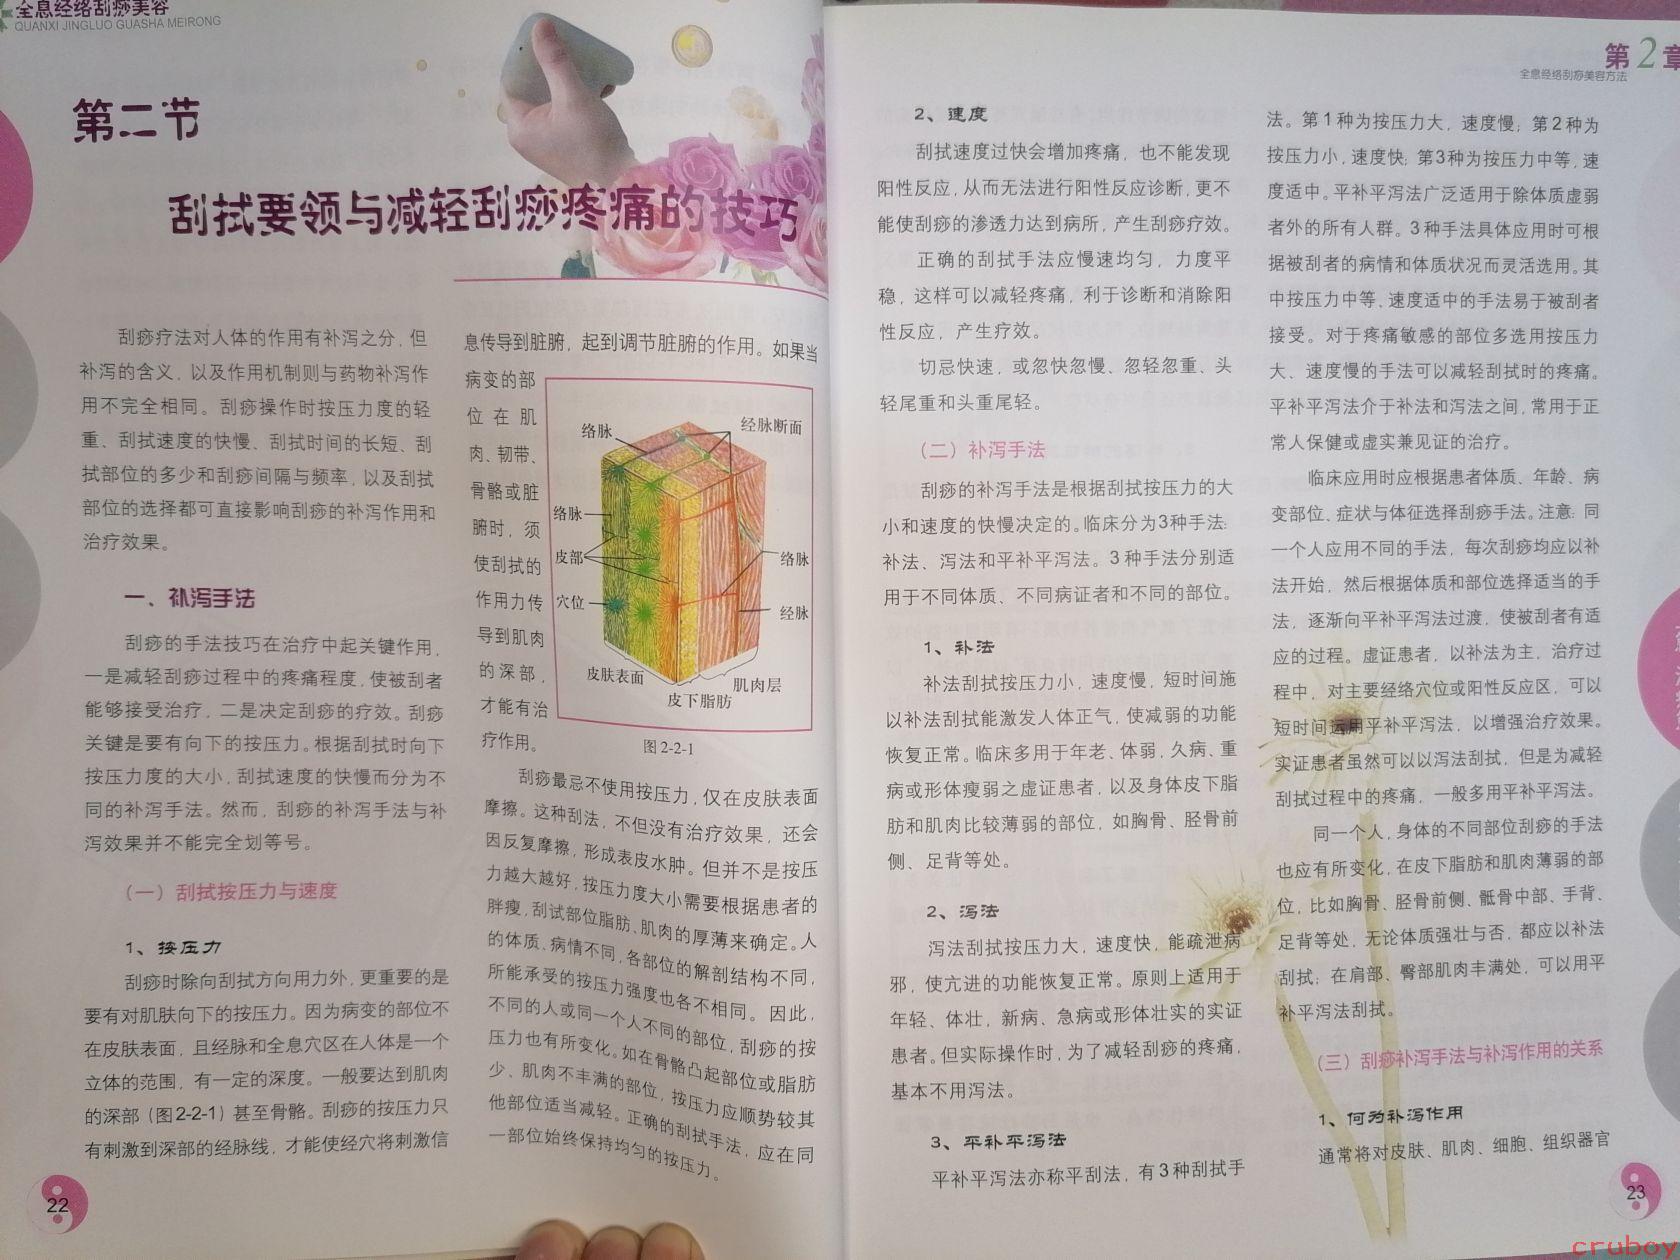 全息经络刮痧美容
QUANXI JINGLUO GUASHA MEIRONG
第二节
刮拭要领与减轻刮痧疼痛的技巧
刮痧疗法对人体的作用有补泻之分，但
补泻的含义，以及作用机制则与药物补泻作
用不完全相同。刮痧操作时按压力度的轻
重、刮拭速度的快慢、刮拭时间的长短、刮
拭部位的多少和刮痧间隔与频率，以及刮拭
部位的选择都可直接影响刮痧的补泻作用和
治疗效果。
一、补泻手法
刮痧的手法技巧在治疗中起关键作用，
一是减轻刮痧过程中的疼痛程度，使被刮者
能够接受治疗，二是决定刮痧的疗效。刮痧
关键是要有向下的按压力。根据刮拭时向下
按压力度的大小，刮拭速度的快慢而分为不
同的补泻手法。然而，刮痧的补泻手法与补
泻效果并不能完全划等号。
（一）刮拭按压力与速度
1、按压力
刮痧时除向刮拭方向用力外，更重要的是
要有对肌肤向下的按压力。因为病变的部位不
在皮肤表面，且经脉和全息穴区在人体是一个
立体的范围，有一定的深度。一般要达到肌肉
的深部（图2-2-1）甚至骨骼。刮痧的按压力只
有刺激到深部的经脉线，才能使经穴将刺激信
22
息传导到脏腑，起到调节脏腑的作用。如果当
病变的部
位在肌
肉、韧带、
骨骼或脏
腑时，须
使刮拭的
作用力传
导到肌肉
的深部，
才能有治
疗作用。
络脉
经脉断面
络脉
皮部
穴位
络脉
经脉
皮肤表面
皮下脂肪
肌肉层
图2-2-1
刮痧最忌不使用按压力，仅在皮肤表面
摩擦。这种刮法，不但没有治疗效果，还会
因反复摩擦，形成表皮水肿。但并不是按压
力越大越好，按压力度大小需要根据患者的
胖瘦，刮试部位脂肪、肌肉的厚薄来确定。人
的体质、病情不同，各部位的解剖结构不同，
所能承受的按压力强度也各不相同。因此，
不同的人或同一个人不同的部位，刮痧的按
压力也有所变化。如在骨骼凸起部位或脂肪
少、肌肉不丰满的部位，按压力应顺势较其
他部位适当减轻。正确的刮拭手法，应在同
一部位始终保持均匀的按压力。
第2章
全息经络刮痧美容方法
2、速度
刮拭速度过快会增加疼痛，也不能发现
阳性反应，从而无法进行阳性反应诊断，更不
能使刮痧的渗透力达到病所，产生刮痧疗效。
正确的刮拭手法应慢速均匀，力度平
稳，这样可以减轻疼痛，利于诊断和消除阳
性反应，产生疗效。
切忌快速，或忽快忽慢、忽轻忽重、头
轻尾重和头重尾轻。
（二）补泻手法
刮痧的补泻手法是根据刮拭按压力的大
小和速度的快慢决定的。临床分为3种手法：
补法、泻法和平补平泻法。3种手法分别适
用于不同体质、不同病证者和不同的部位。
1、补法
补法刮拭按压力小，速度慢，短时间施
以补法刮拭能激发人体正气，使减弱的功能
恢复正常。临床多用于年老、体弱，久病、重
病或形体瘦弱之虚证患者，以及身体皮下脂
肪和肌肉比较薄弱的部位，如胸骨、胫骨前
侧、足背等处。
2、泻法
泻法刮拭按压力大，速度快，能疏泄病
邪，使亢进的功能恢复正常。原则上适用于
年轻、体壮，新病、急病或形体壮实的实证
患者。但实际操作时，为了减轻刮痧的疼痛，
基本不用泻法。
3、平补平泻法
平补平泻法亦称平刮法，有3种刮拭手
法。第1种为按压力大，速度慢；第2种为
按压力小，速度快；第3种为按压力中等，速
度适中。平补平泻法广泛适用于除体质虚弱
者外的所有人群。3种手法具体应用时可根
据被刮者的病情和体质状况而灵活选用。其
中按压力中等、速度适中的手法易于被刮者
接受。对于疼痛敏感的部位多选用按压力
大、速度慢的手法可以减轻刮拭时的疼痛。
平补平泻法介于补法和泻法之间，常用于正
常人保健或虚实兼见证的治疗。
临床应用时应根据患者体质、年龄、病
变部位、症状与体征选择刮痧手法。注意：同
一个人应用不同的手法，每次刮痧均应以补
法开始，然后根据体质和部位选择适当的手
法，逐渐向平补平泻法过渡，使被刮者有适
应的过程。虚证患者，以补法为主，治疗过
程中，对主要经络穴位或阳性反应区，可以
短时间运用平补平泻法，以增强治疗效果。
实证患者虽然可以以泻法刮拭，但是为减轻
刮拭过程中的疼痛，一般多用平补平泻法。
同一个人，身体的不同部位刮痧的手法
也应有所变化，在皮下脂肪和肌肉薄弱的部
位，比如胸骨、胫骨前侧、骶骨中部、手背、
足背等处，无论体质强壮与否，都应以补法
刮拭；在肩部、臀部肌肉丰满处，可以用平
补平泻法刮拭。
（三）刮痧补泻手法与补泻作用的关系
1、何为补泻作用
通常将对皮肤、肌肉、细胞、组织器官
23
cruboy